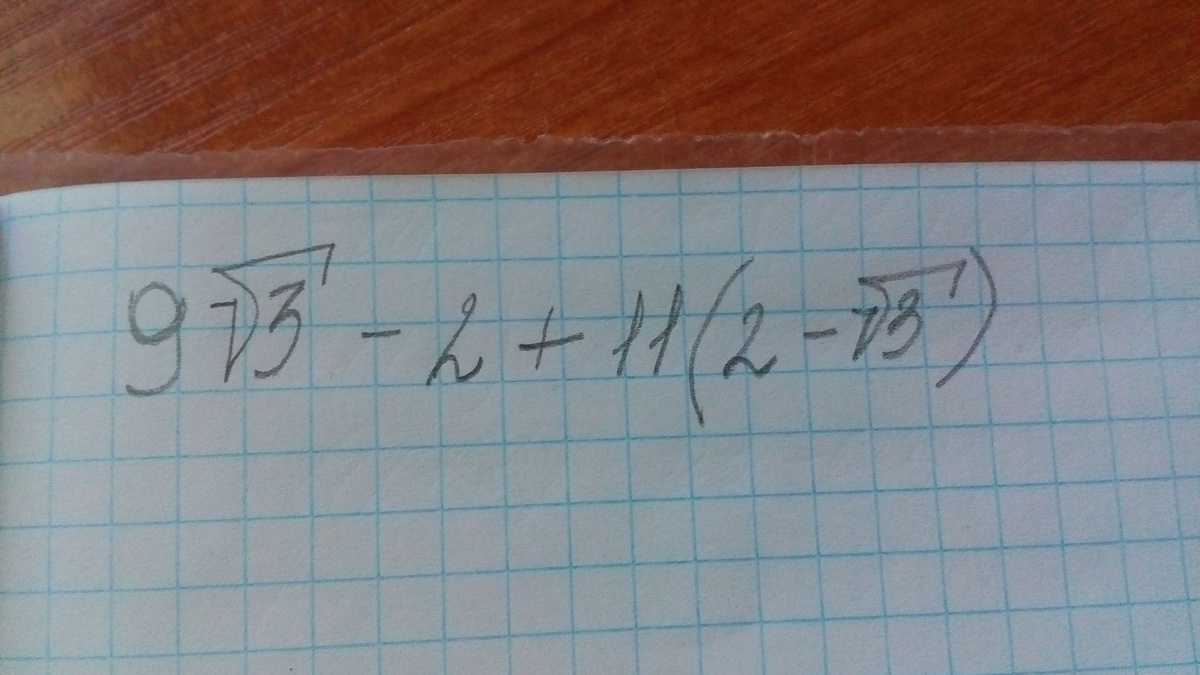 9√3 - 2 + 11(2 - √3)